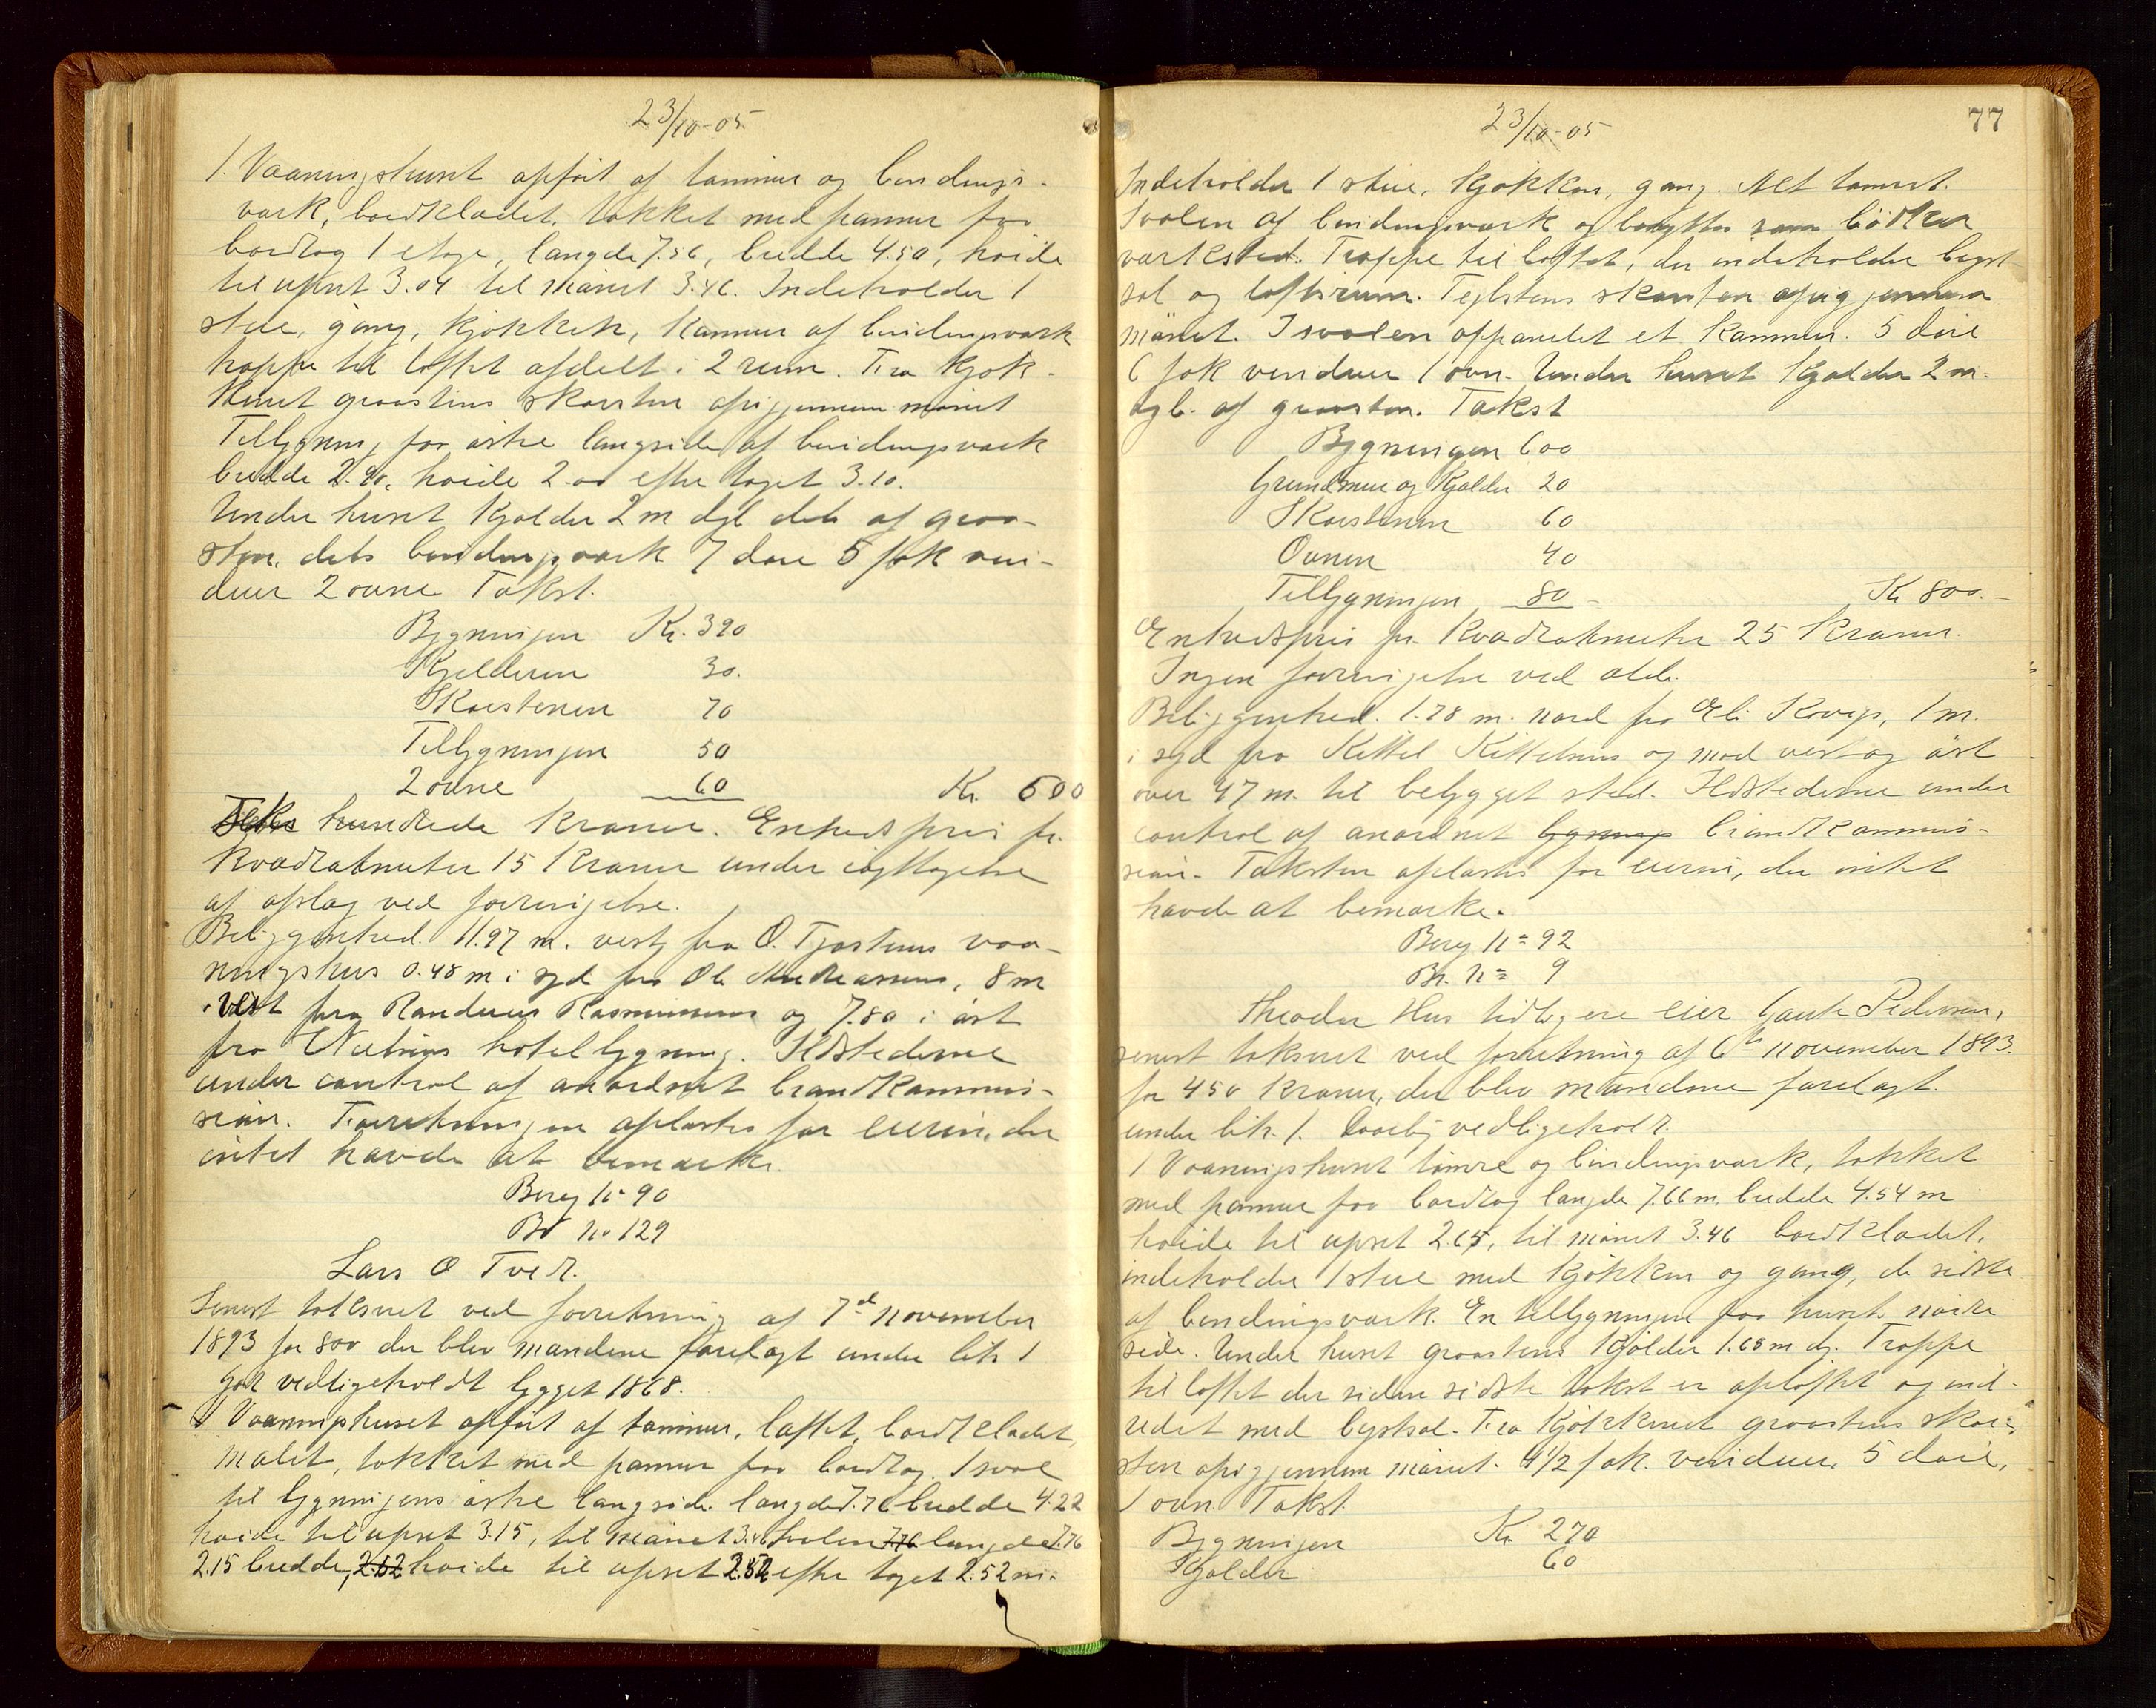 23/10-05
1. Vaaningshuset opført af tømmer og bindings-
værk, bordklædt, tækket med panner paa
bordtag 1 etage, længde 7.56, bredde 4.50, høide
til upset 3.04 til mønet 3.46. Indeholder 1
stue, gang, kjøkken, kammer af bindingsværk
trappe til loftet afdelt i 2 rum. Fra kjøk-
kenet graastens skorsten op igjennem mønet
Tilbygning paa østre langside af bindingsværk
bredde 2.90, høide 2.00 efter taget 3.10.
Under huset kjælder 2 m dyb dels af graa-
sten, dels bindingsværk 7 døre 5 fak vin-
duer 2 ovne Takst.
Bygningen Kr. 390
Kjelderen 30.
Skorstenen 70
Tilbygningen 50
2 ovne 60 Kr. 600
Seks hundrede kroner. Enhedspris pr.
kvadratmeter 15 kroner under iagttagelse
af afslag ved forringelse.
Beliggenhed. 11.97 m. vest fra O. Tjøstems vaa-
ningshus 0.48 m i syd fra Ole Andreasens, 8 m
i vest fra Randines Rasmussens og 7.80 i øst
fra Nielsens hotelbygning. Ildstederne
under control af anordnet brandkommis-
sion. Forretningen oplæstes for eieren, der
intet havde at bemærke.
Berg no 90
Br no 129
Lars O Tved.
Senest taksert ved forretning af 7d november
1893 for 800 der blev mændene forelagt under litr 1
godt vedligeholdt bygget 1868.
1 Vaaningshuset opført af tømmer, loftet, bordklædt,
malet, tækket med panner paa bordtag. 1 sval
til bygningens østre langside. længde 7.76 bredde 4.22
høide til upset 3.15, til mønet 3.46 Svalen 7.76 længde 7.76
2.15 bredde, 2.62 høide til upset 2.52 efter taget 2.52 m.
23/10-05
77
Indeholder 1 stue, kjøkken, gang. Alt tømret.
Svalen af bindingsværk og benyttes som bødker
værksted. Trappe til loftet, der indeholder lyst
sal og loftsrum. Teglstens skorsten op igjennem
mønet. I svalen oppanelet et kammer. 5 døre
6 fak vinduer 1 ovn. Under huset kjælder 2 m.
dyb. af graasten. Takst
Bygningen 600
Grundmur og Kjælder 20
Skorstenen 60
Ovnen 40
Tilbygningen 80 - Kr 800.-
Enhedspris pr. kvadratmeter 25 kroner.
Ingen forringelse ved ælde.
Beliggenhed. 1.78 m. nord fra Eli Kovgs, 1 m.
i syd fra Kittel Kittelsens og mod vest og øst
over 47 m. til bebygget sted. Ildstederne under
control af anordnet bygnings brandkommis-
sion. Taksten oplæstes for eieren, der intet
havde at bemærke.
Berg no 92
Br. no 9
Theodor Hus tidligere eier Gaute Pedersen,
senest taksert ved forretning af 6te november 1893.
for 450 kroner, der blev mændene forelagt.
under litr. 1. Daarlig vedligeholdt.
1 Vaaningshuset tømre og bindingsværk, tækket
med panner paa bordtag længde 7.66 m. bredde 4.54 m
høide til upset 2.64, til mønet 3.46 bordklædt,
indeholder 1 stue med kjøkken og gang, de sidste
af bindingsværk. En tilbygningen paa husets nordre
side. Under huset graastens kjælder 1.68 m dyb. Trappe
til loftet der siden sidste takst er opløftet og ind-
redet med lystsal. Fra kjøkkenet graastens skor-
sten op igjennem mønet. 4 1/2 fak. vinduer, 5 døre,
1 ovn. Takst.
Bygningen Kr. 270
Kjælder 60